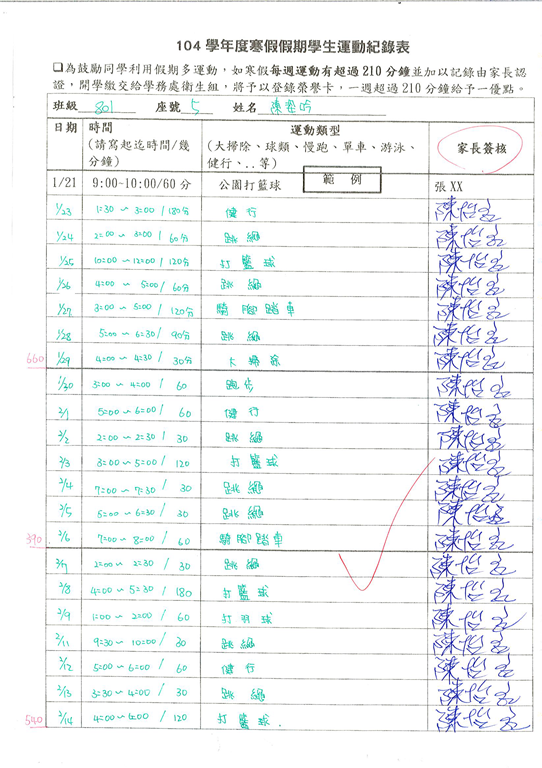 104 學年度寒假假期學生運動紀錄表
□為鼓勵同學利用假期多運動，如寒假每週運動有超過210分鐘並加以記錄由家長認
證，開學繳交給學務處衛生組，將予以登錄榮譽卡，一週超過210分鐘給予一優點。
班級 801 座號 5 姓名 陳
日期 時間 (請寫起迄時間/幾分鐘) 運動類型 (大掃除、球類、慢跑、單車、游泳、健行、..等) 家長簽核
1/21 9:00~10:00/60分 公園打籃球 範例 張XX
1/23 1:30~3:00/180分 健行 陳怡
1/24 2:00~3:00/60分 跳繩 陳怡
1/25 10:00~12:00/120分 打籃球 陳怡
1/26 4:00~5:00/60分 跳繩 陳怡
1/27 3:00~5:00/120分 騎腳踏車 陳怡
1/28 5:00~6:30/90分 跳繩 陳怡
660 1/29 4:00~4:30/30分 大掃除 陳怡
1/30 3:00~4:00/60 跑步 陳怡
2/1 5:00~6:00/60 健行 陳怡
2/2 2:00~2:30/30 跳繩 陳怡
2/3 3:00~5:00/120 打籃球 陳怡
2/4 7:00~7:30/30 跳繩 陳怡
2/5 5:00~6:30/30 跳繩 陳怡
390 2/6 7:00~8:00/60 騎腳踏車 陳怡
2/7 2:00~2:30/30 跳繩 陳怡
2/8 4:00~5:30/180 打籃球 陳怡
2/9 1:00~2:00/60 打羽球 陳怡
2/11 9:30~10:00/30 跳繩 陳怡
2/12 5:00~6:00/60 健行 陳怡
2/13 3:30~4:00/30 跳繩 陳怡
540 2/14 4:00~6:00/120 打籃球. 陳怡